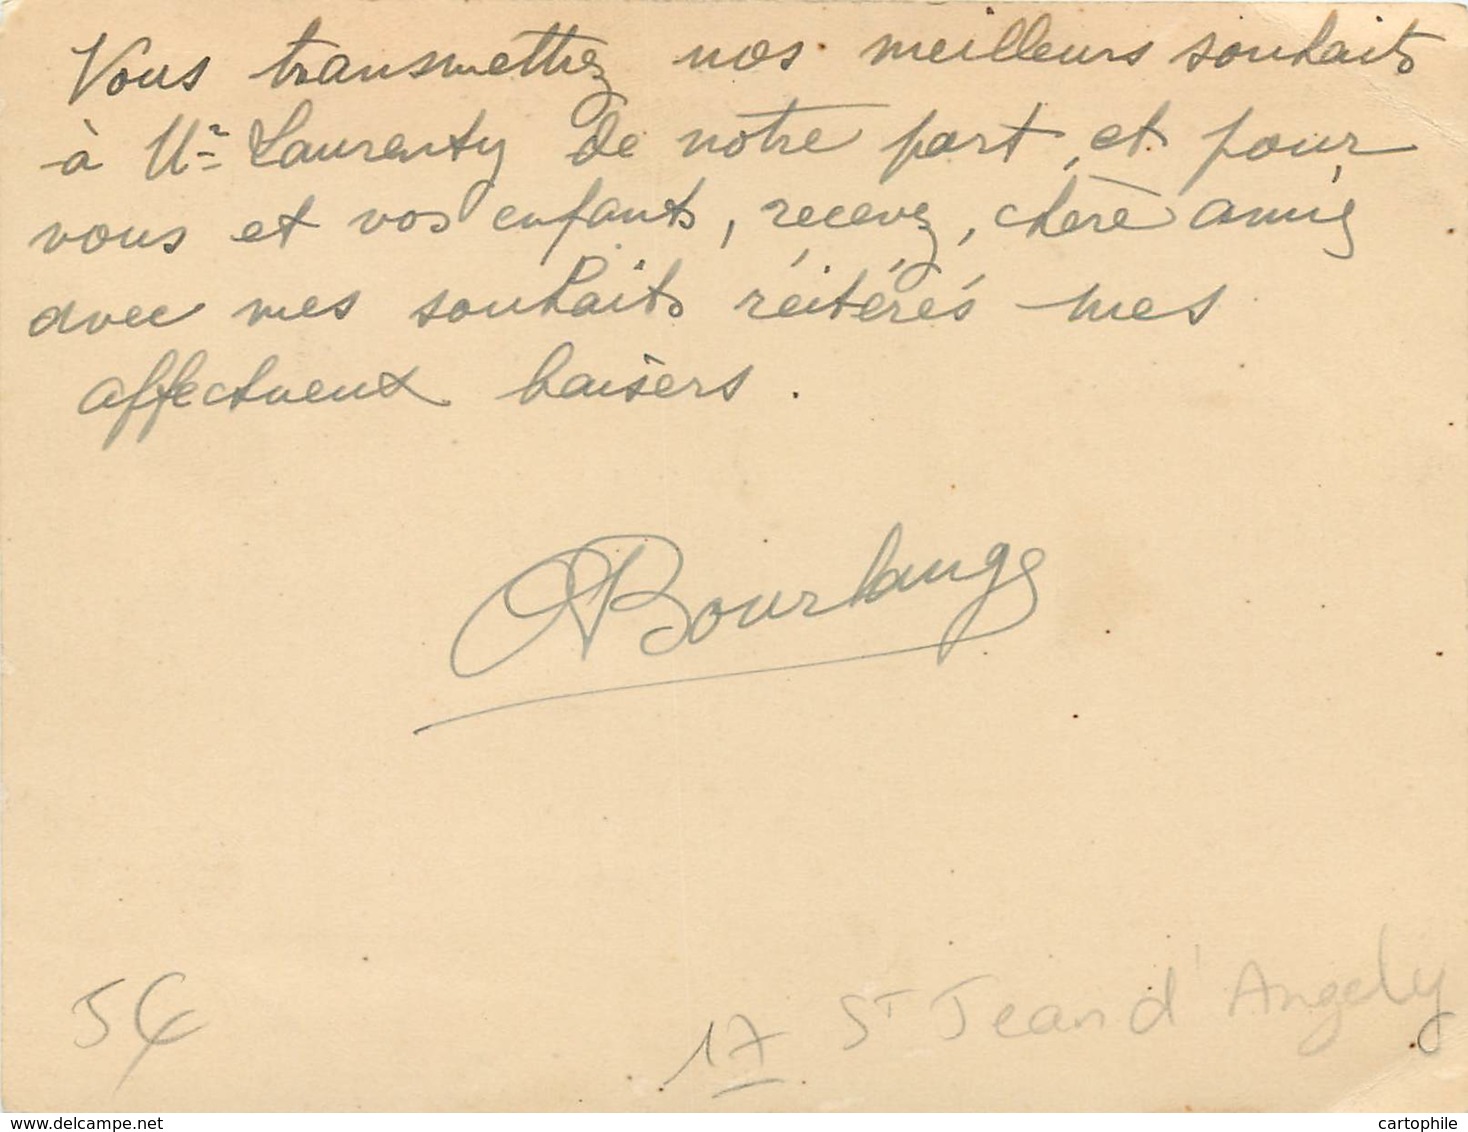 Vous transmettrez nos meilleurs souhaits
à Mr Laurenty de notre part, et pour
vous et vos enfants, recevez, chère amie
avec mes souhaits réitérés mes
affectueux baisers.
Bourlange
5€
17 St Jean d'Angely
cartophile